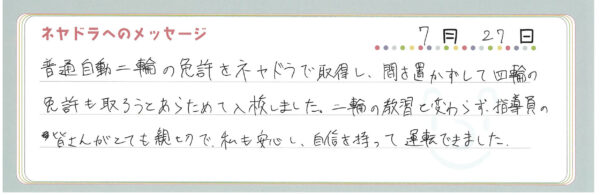 ネヤドラへのメッセージ
7月 27日
普通自動二輪の免許をネヤドラで取得し、間を置かずして四輪の
免許も取ろうとあらためて入校しました。二輪の教習と変わらず指導員の
皆さんがとても親切で、私も安心し、自信を持って運転できました。